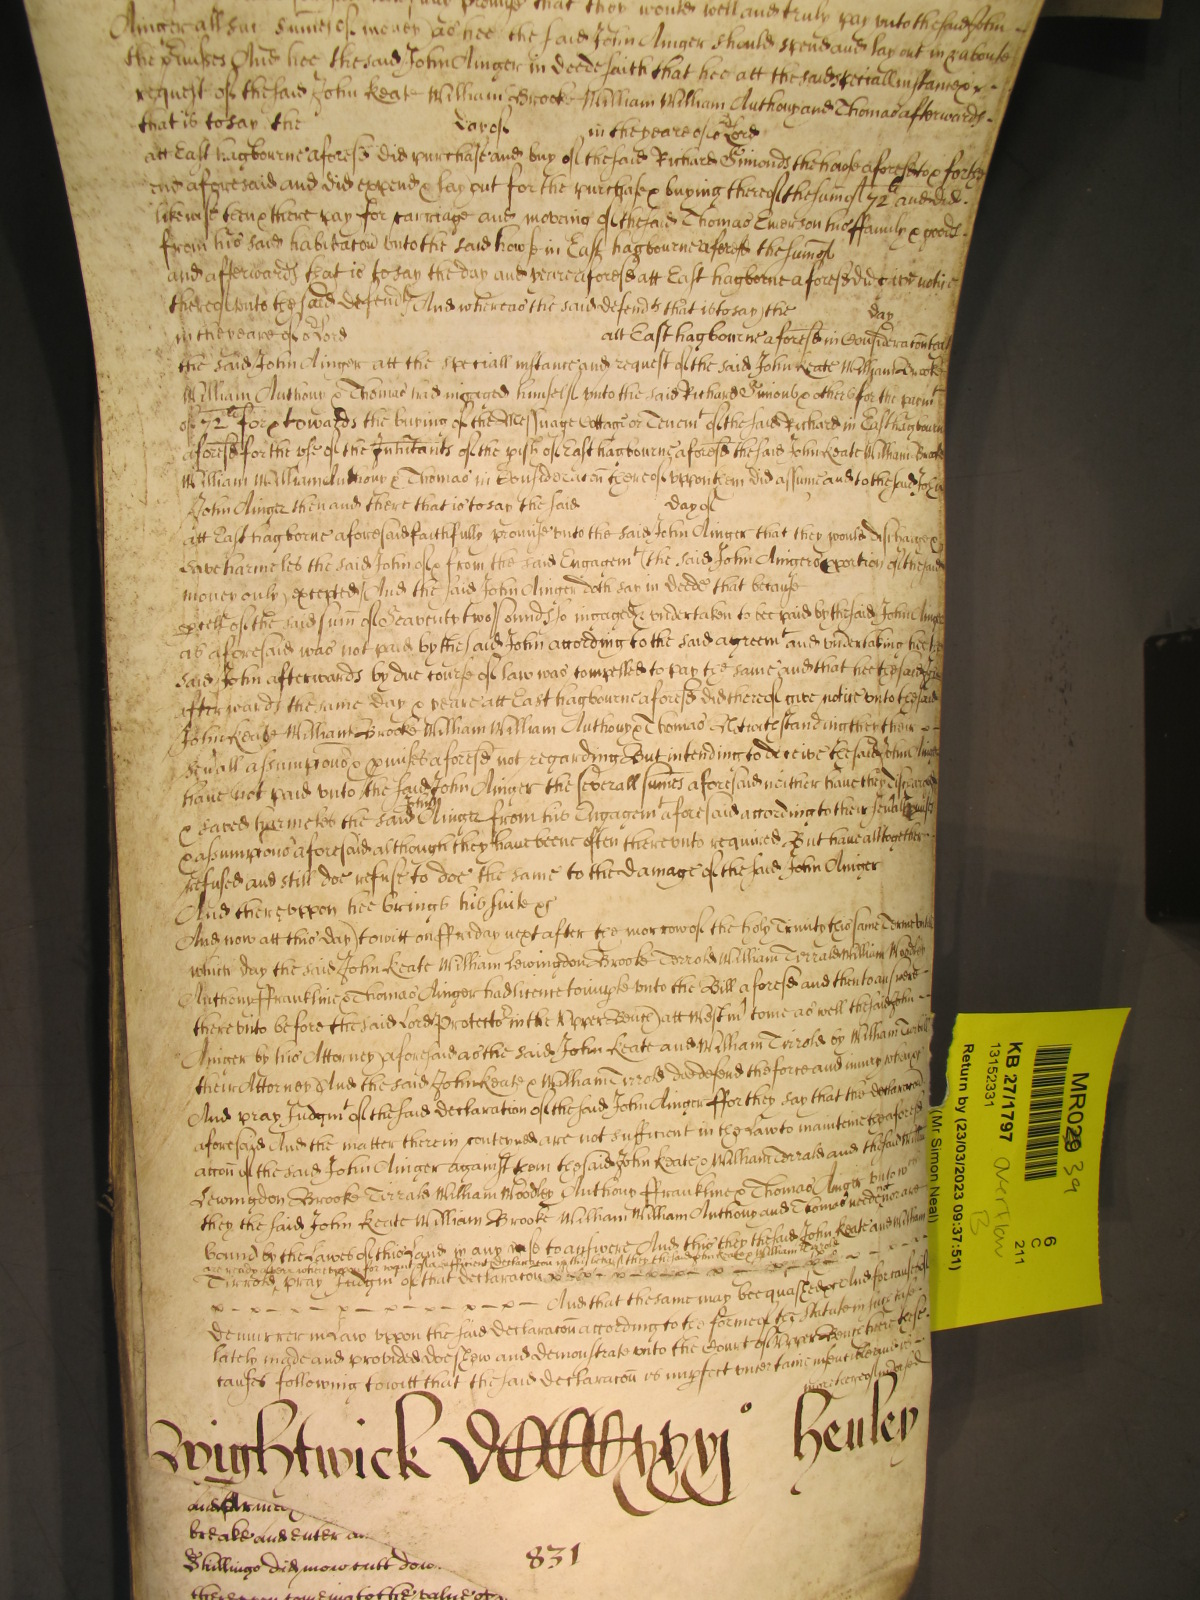 promise that they would well and truly pay unto the said John
Ainger all such summes of money as hee the said John Ainger should spend and lay out in & aboute
the pmisses And hee the said John Ainger in deede saith that hee att the said speciall instance &
request of the said John Keate William Brooke William William Anthony and Thomas afterwards
that is to say the day of in the yeare of or Lord
att East hagbourne aforesd did purchase and buy of the said Richard Simonds the howse aforesd to & for the
end aforesaid and did expend & lay out for the purchase & buying thereof the sum of 72li and did
likewise then & there pay for carriage and moving of the said Thomas Emerson his ffamily & goods
from his said habitacon unto the said howse in East hagbourne aforesd the sum of
and afterwards that is to say the day and yeare aforesd att East hagborne aforesd did give notice
thereof unto the said defendts And whereas the said defendts that is to say the day
in the yeare of or Lord att East hagbourne aforesd in Consideracon that
the said John Ainger att the speciall instance and request of the said John Keate William Brooke
William Anthony & Thomas had ingaged himself unto the said Richard Simonds & others for the paymt
of 72li for & towards the buying of the Messuage Cottage or Tenemt of the said Richard in East hagbourne
aforesd for the use of the Inhitants of the pish of East hagbourne aforesd the said John Keate William Brooke
William William Anthony & Thomas in Consideracon thereof uppon them did assume and to the said John
John Ainger then and there that is to say the said day of
att East hagborne aforesaid faithfully promise unto the said John Ainger that they would discharge &
save harmeles the said John of & from the said Engagemt (the said John Aingers pportion of the said
money only) excepted And the said John Ainger doth say in deede that because
of the said sum of Seaventy two pounds so ingaged & undertaken to bee paid by the said John Ainger
as aforesaid was not paid by the said John according to the said agreemt and undertaking hee the
said John afterwards by due course of law was compelled to pay the same and that hee the said John
afterwards the same day & yeare att East hagbourne aforesd did thereof give notice unto the said
John Keate William Brooke William William Anthony & Thomas Notwithstanding they their
sevall assumpcons & pmises aforesd not regarding But intending to deceive the said John Ainger
have not paid unto the said John Ainger the severall summes aforesaid neither have they discharged
& saved harmeles the said John Ainger from his Engagemt aforesaid according to their sevall pmises
& assumpcons aforesaid although they have beene often thereunto required But have alltogether
refused and still doe refuse to doe the same to the damage of the said John Ainger
And thereuppon hee brings his suite &c
And now att this day to witt on ffriday next after the morrow of the holy Trinity this same Terme untill
which day the said John Keate William Lewingdon Brooke Terrold William Terrald William Woodley
Anthony ffrankline & Thomas Ainger had licence to imple unto the Bill aforesd and then to answere
thereunto before the said Lord Protector in the Upper Bench att Westmr come as well the said John
Ainger by his Attorney aforesaid as the said John Keate and William Tirrold by William
their Attorney And the said John Keate & William Tirrold doe defend the force and iniury when &c
And pray Judgmt of the said declaration of the said John Ainger ffor they say that the declaracon
aforesaid And the matter therein conteyned are not sufficient in the Law to mainteine the aforesd
accon of the said John Ainger against them the said John Keate & William Terrald and the said William
Lewingdon Brooke Tirrald William Woodley Anthony ffrankline & Thomas Ainger unto wch
they the said John Keate William Brooke William William Anthony and Thomas neede not nor are
bound by the Lawes of this Land in any wise to answere And this they the said John Keate and William
are ready to averr whereuppon for want of a sufficient declaracon in this behalf they the said John Keate & William Tirrold
Tirrold pray Judgmt of that declaracon
And that the same may bee quashed &c And for causes of
demurrer in Law uppon the said declaracon according to the forme of the Statute in such case
lately made and provided doe shew and demonstrate unto the Court of Upper Bench here these
causes following to witt that the said declaracon is imperfect uncertaine
Wightwick DCCCCxxxjo Henley
and
breake and enter
Shillings did mow cutt dow
thereuppon coming to the value of
831
MR029 39
6
C
211
KB 27/1797
13152331
overflow
B
Return by (23/03/2023 09:37:51)
(Mr Simon Neal)